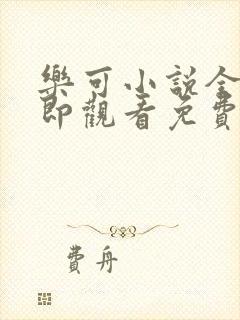 樂可小說全
即觀看免費
費舟